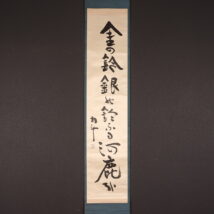 金の鈴銀の鈴ふる河鹿かな